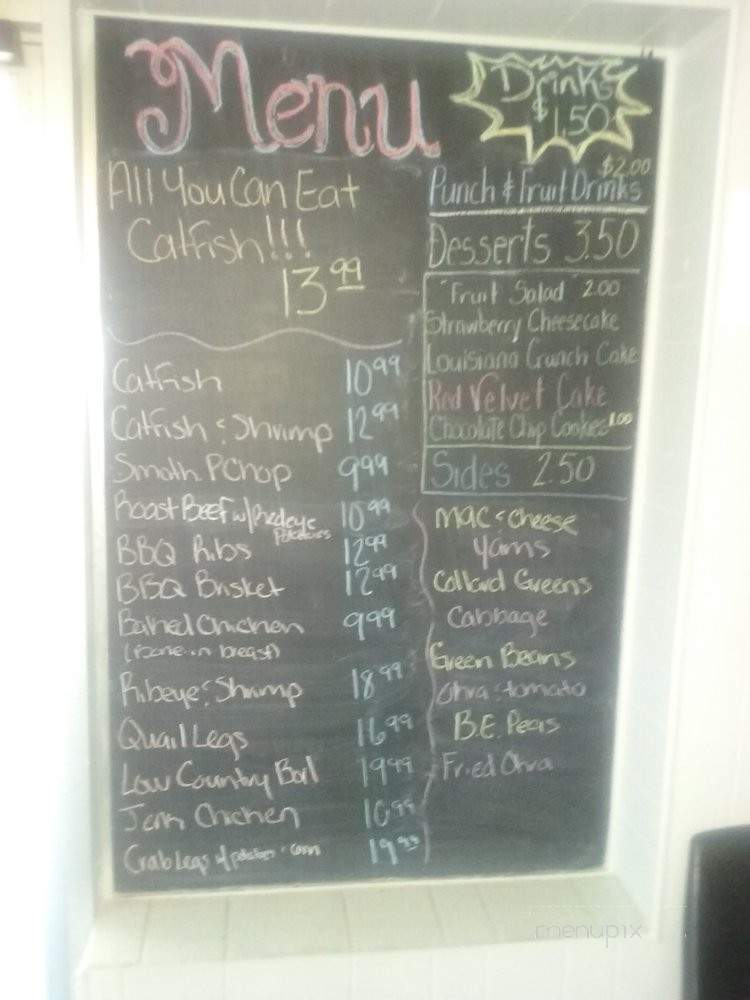 Menu
Drinks
$1.50
All You Can Eat
Catfish!!!
13.99
$2.00
Punch & Fruit Drinks
Desserts 3.50
"Fruit Salad" 2.00
Strawberry Cheesecake
Louisiana Crunch Cake
Red Velvet Cake
Chocolate Chip Cookies 1.00
Sides 2.50
Catfish 10.99
Catfish & Shrimp 12.99
Smoth P Chop 9.99
Roast Beef w/ Redeye 10.99
Potatoes
BBQ Ribs 12.99
BBQ Brisket 12.99
Baked Chicken 9.99
(bone-in breast)
Ribeye & Shrimp 18.99
Quail Legs 16.99
Low Country Boil 19.99
Jerk Chicken 10.99
Crab Legs w/ potatoes & corn 19.99
Mac & Cheese
Yams
Collard Greens
Cabbage
Green Beans
Okra & tomato
B.E. Peas
Fried Okra
menupix